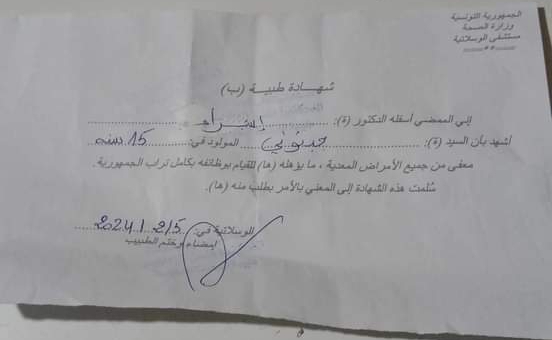 الجمهورية التونسية
وزارة الصحة
مستشفى الوسلاتية
شهادة طبية (ب)
إلي الممضي أسفله الدكتور (ة): إسراء
اشهد بأن السيد (ة): المولود في: 15 سنه
معفى من جميع الأمراض المعدية ، ما يؤهله (ها) للقيام بوظائفه بكامل تراب الجمهورية.
سُلمت هذه الشهادة إلى المعني بالأمر بطلب منه (ها).
الوسلاتية في: 2024/2/5
إمضاء وختم الطبيب